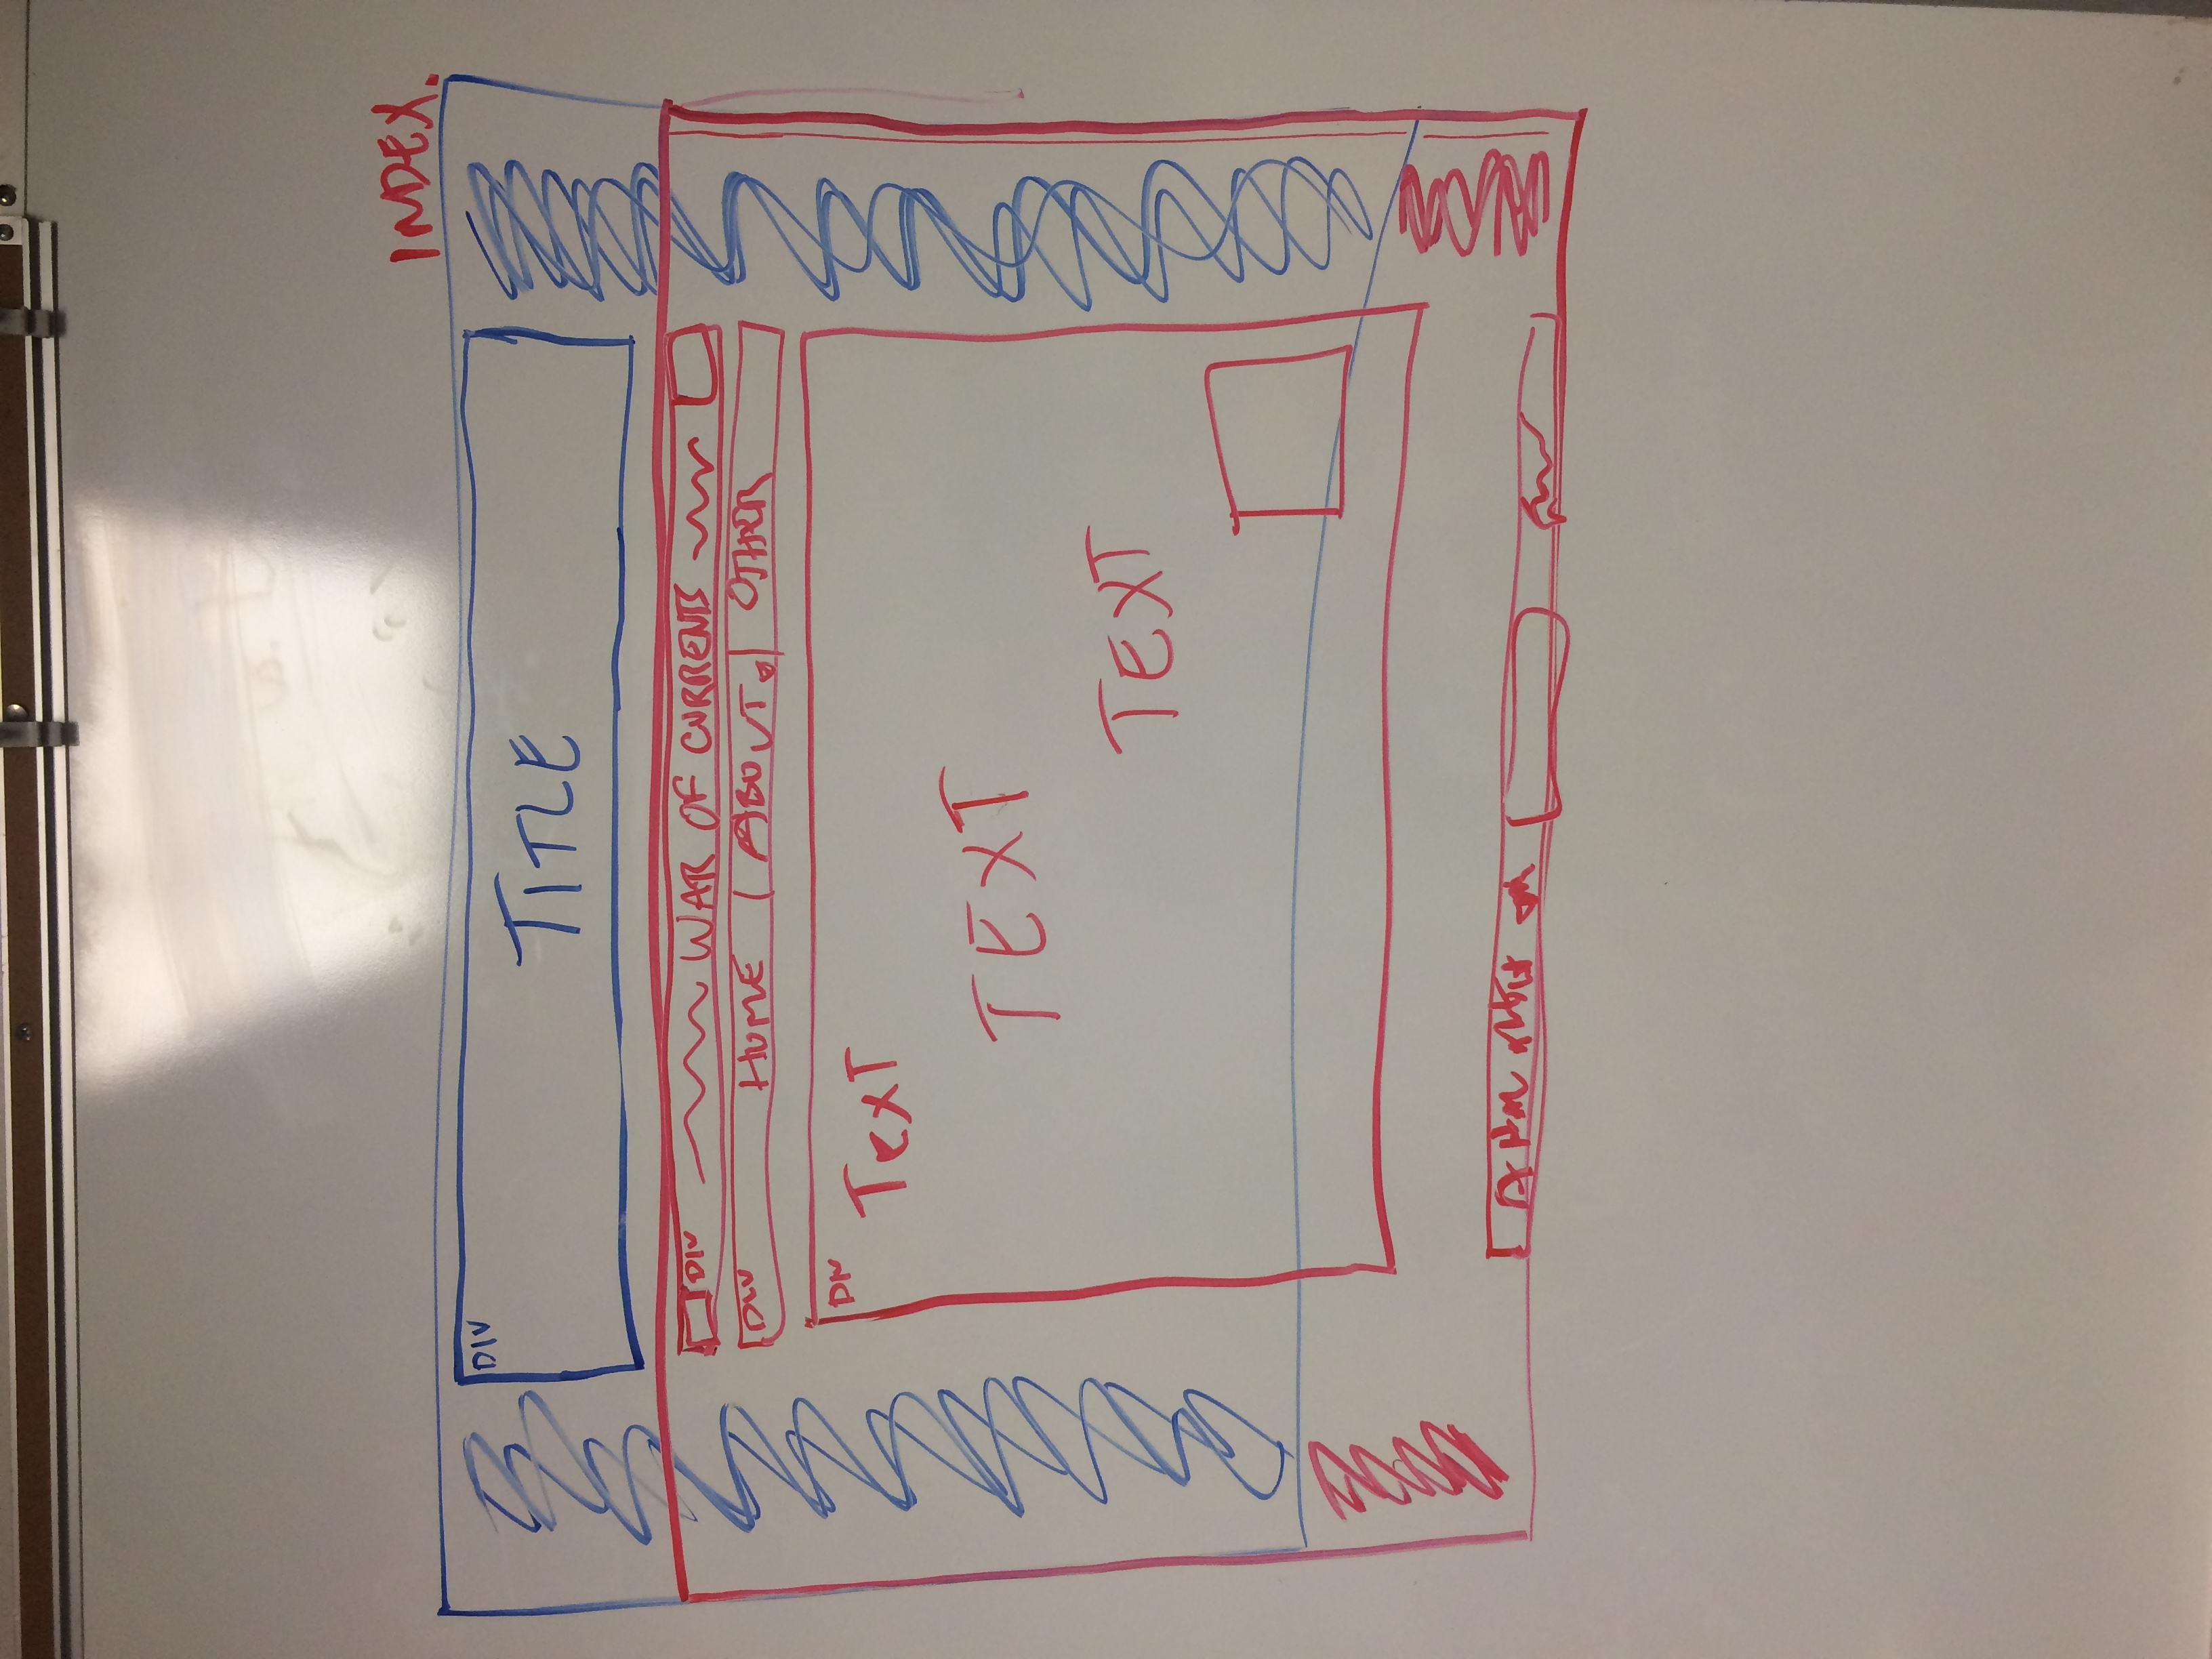 INDEX.
DIV
TITLE
DIV WAR OF CURRENTS
DIV HOME | ABOUT | OTHER
DIV
TEXT
TEXT
TEXT